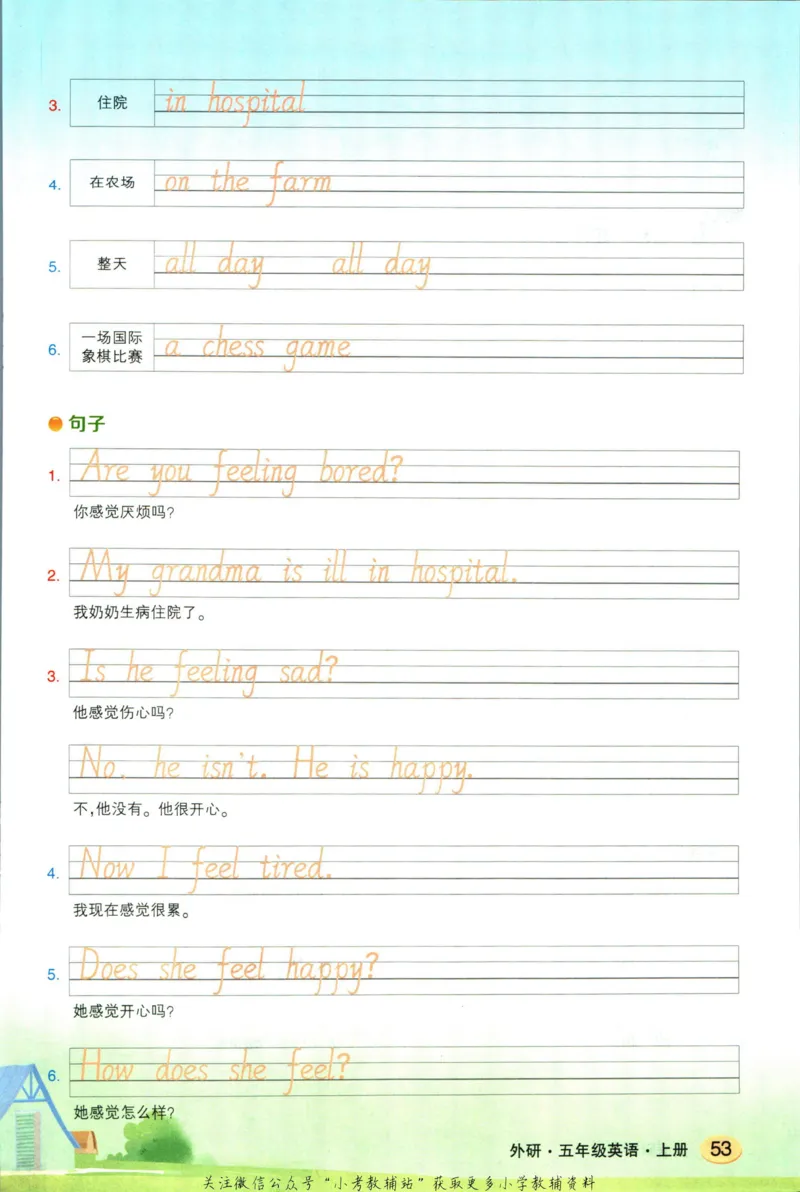 3. 住院 in hospital
4. 在农场 on the farm
5. 整天 all day all day
6. 一场国际
象棋比赛 a chess game
句子
1. Are you feeling bored?
你感觉厌烦吗?
2. My grandma is ill in hospital.
我奶奶生病住院了。
3. Is he feeling sad?
他感觉伤心吗?
No, he isn't. He is happy.
不,他没有。他很开心。
4. Now I feel tired.
我现在感觉很累。
5. Does she feel happy?
她感觉开心吗?
6. How does she feel?
她感觉怎么样?
外研·五年级英语·上册 53
关注微信公众号“小考教辅站”获取更多小学教辅资料